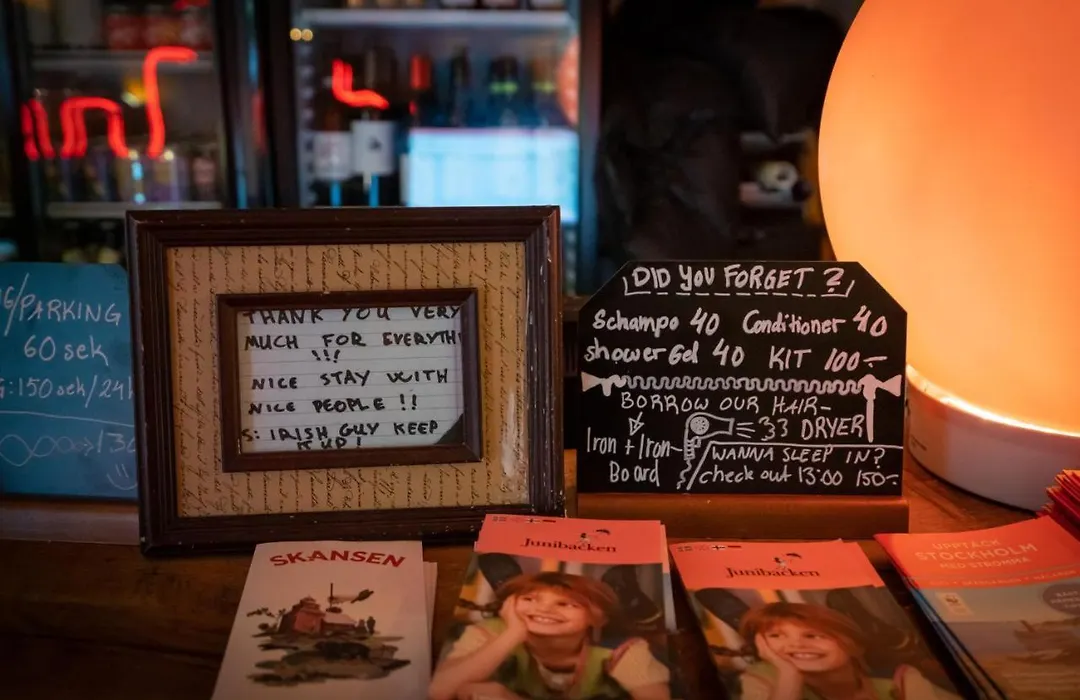 /PARKING
60 sek
:150 sek/24h
THANK YOU VERY
MUCH FOR EVERYTH
!!!
NICE STAY WITH
NICE PEOPLE !!
S: IRISH GUY KEEP
IT UP!
DID YOU FORGET ?
Schampo 40 Conditioner 40
shower Gel 40 KIT 100:-
BORROW OUR HAIR-
DRYER
Iron + Iron-
Board
WANNA SLEEP IN?
check out 13:00 150:-
SKANSEN
Junibacken
Junibacken
UPPTÄCK
STOCKHOLM
MED STROMMA